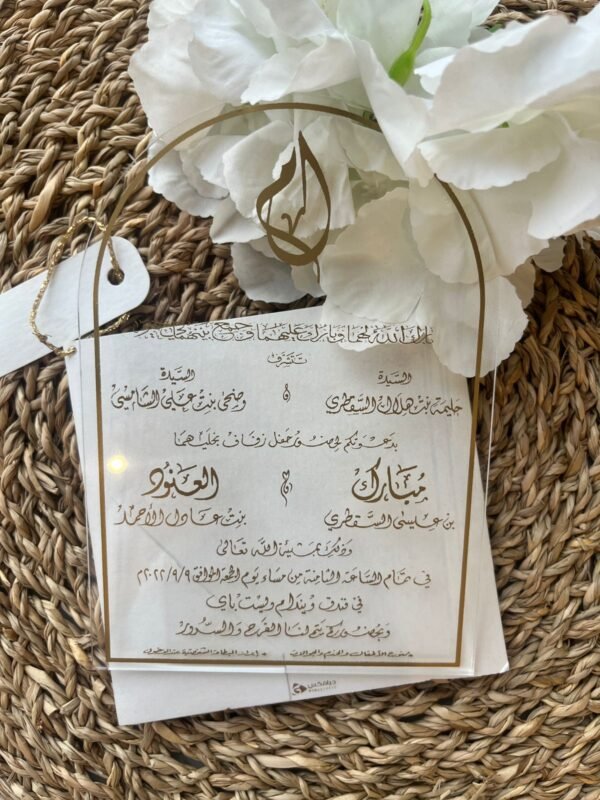 بارك الله لهما وبارك عليهما وجمع بينهما في خير
تتشرف
السيدة السيدة
حليمة بنت هلال السقطري وضحى بنت علي الشامسي
بدعوتكم لحضور حفل زفاف نجليهما
مبارك العنود
بن عيسى السقطري بنت عادل الأحمد
وذلك بمشيئة الله تعالى
في تمام الساعة الثامنة من مساء يوم الجمعة الموافق ٢٠٢٢/٩/٩م
في فندق ويندام ويست باي
وبحضوركم يتم لنا الفرح والسرور